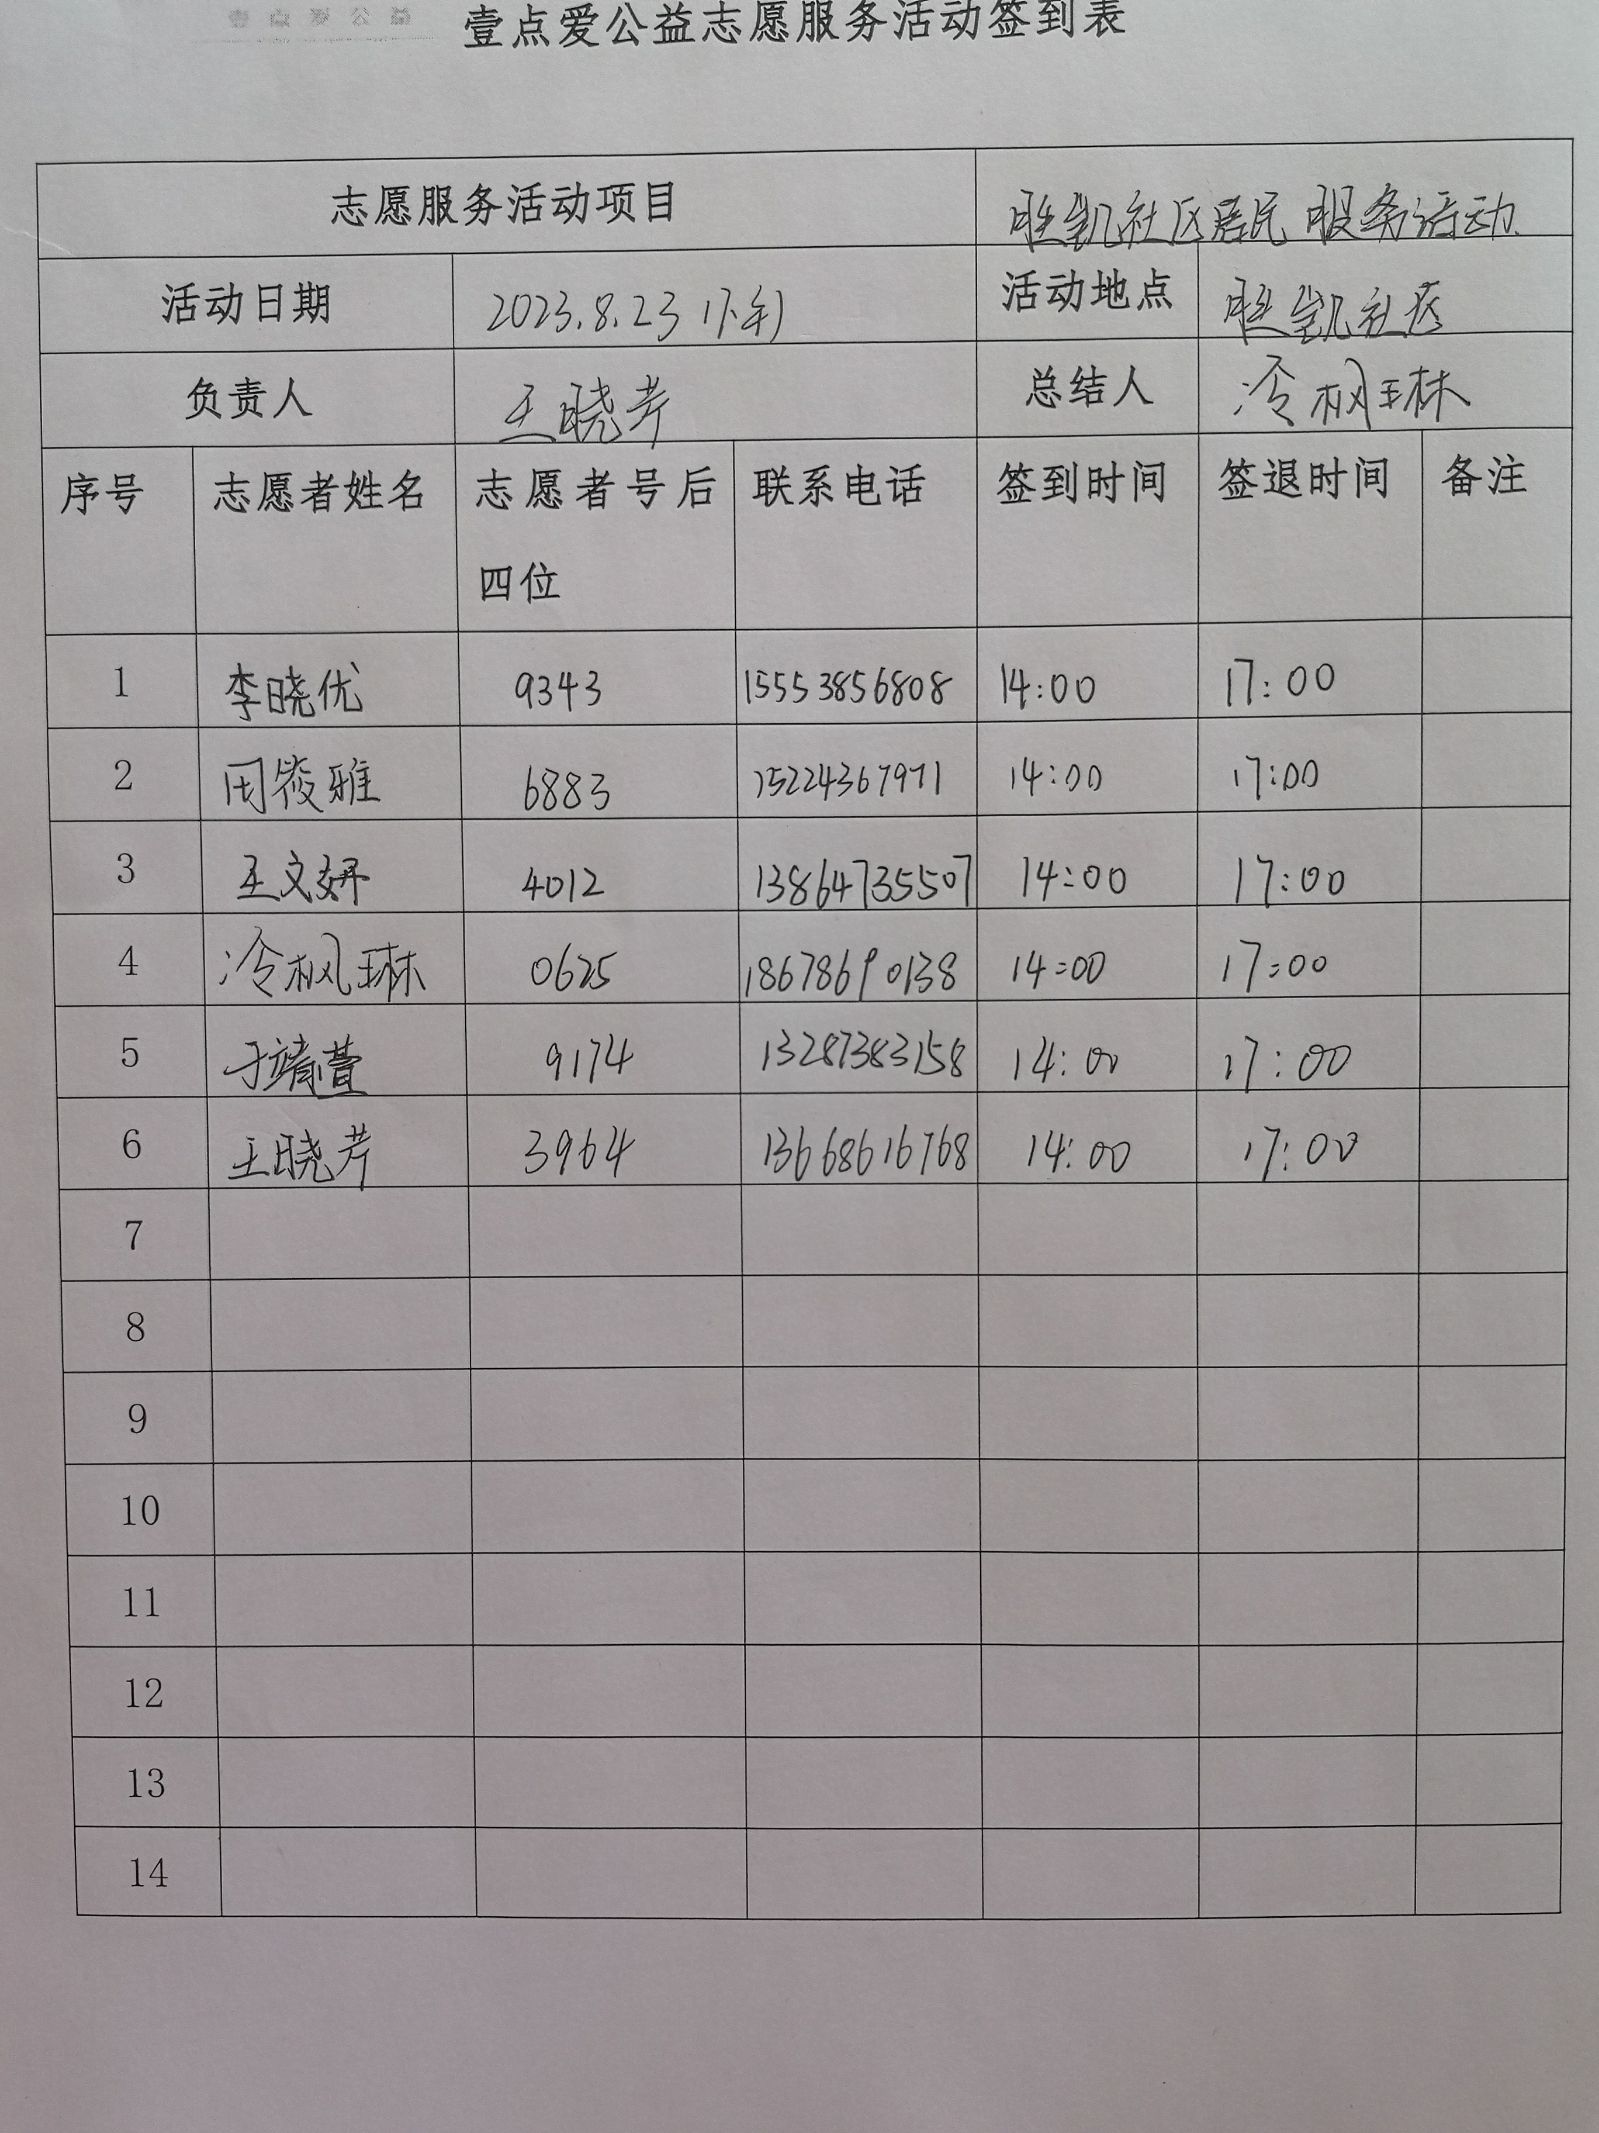 壹点爱公益志愿服务活动签到表
志愿服务活动项目 胜凯社区居民服务活动
活动日期 2023.8.23 下午 活动地点 胜凯社区
负责人 王晓芹 总结人 冷枫琳
序号 志愿者姓名 志愿者号后四位 联系电话 签到时间 签退时间 备注
1 李晓优 9343 15553856808 14:00 17:00
2 田筱雅 6883 15224367971 14:00 17:00
3 王文妍 4012 13864735507 14:00 17:00
4 冷枫琳 0625 18678690138 14:00 17:00
5 于靖萱 9174 13287383158 14:00 17:00
6 王晓芹 3964 13668616768 14:00 17:00
7
8
9
10
11
12
13
14